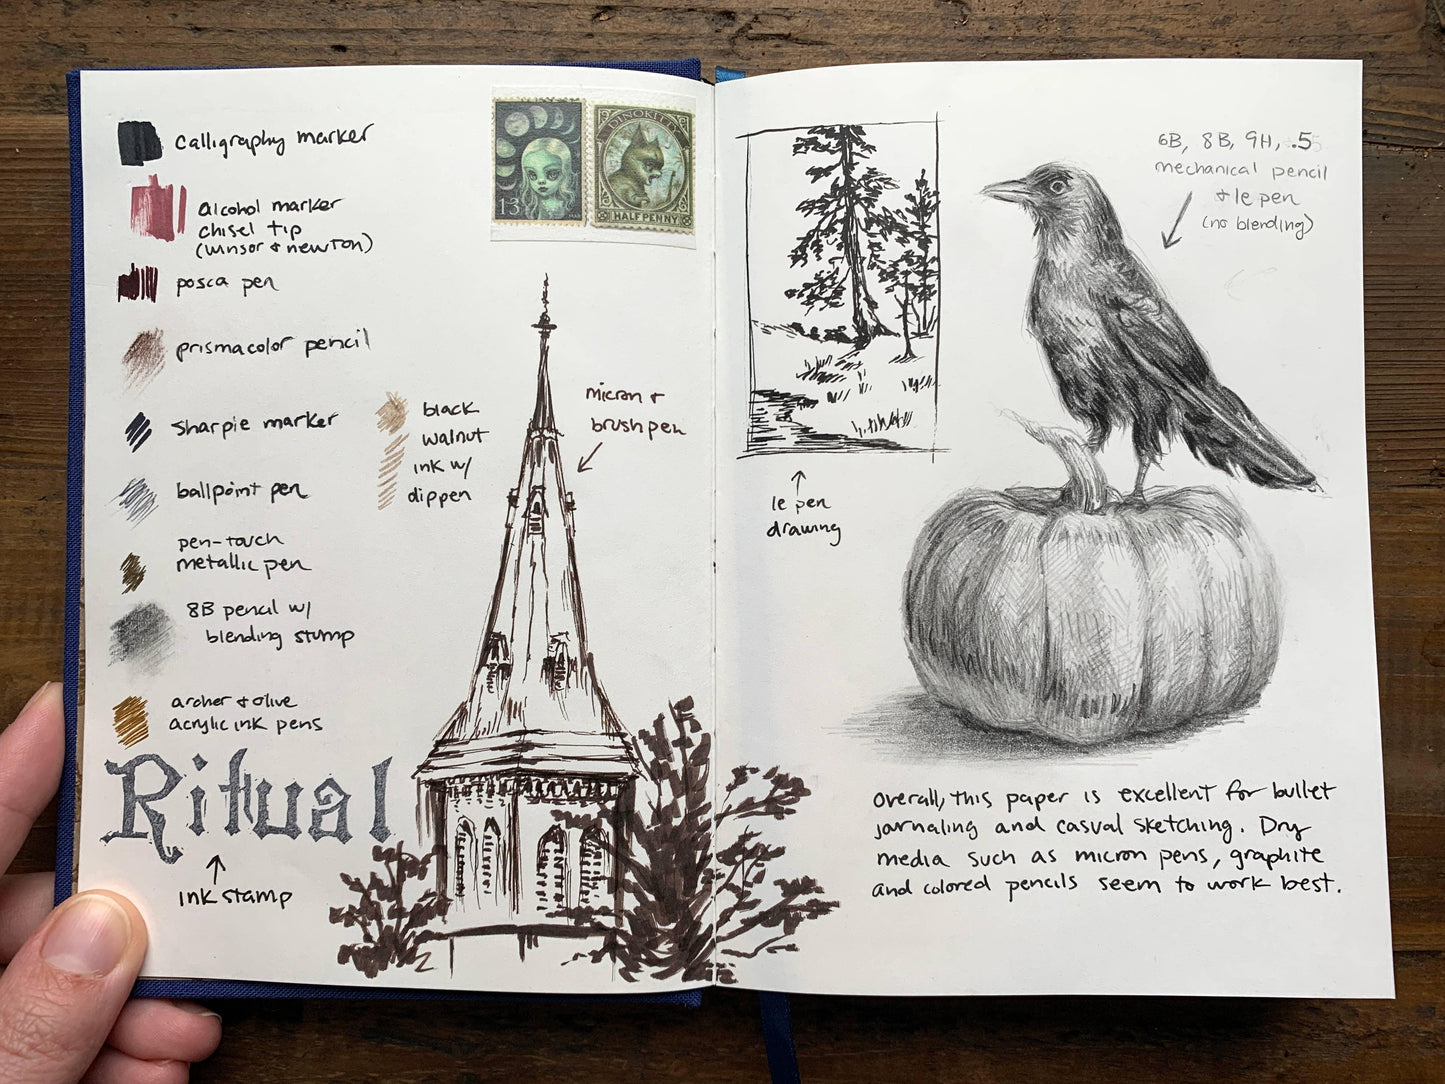 calligraphy marker
alcohol marker
chisel tip
(winsor & newton)
posca pen
prismacolor pencil
sharpie marker
ballpoint pen
pen-touch
metallic pen
8B pencil w/
blending stump
archer & olive
acrylic ink pens
Ritual
ink stamp
black
walnut
ink w/
dip pen
13
DINOKITTY
HALF PENNY
micron &
brush pen
le pen
drawing
6B, 8B, 9H, .5
mechanical pencil
& le pen
(no blending)
Overall, this paper is excellent for bullet
jornaling and casual sketching. Dry
media such as micron pens, graphite
and colored pencils seem to work best.